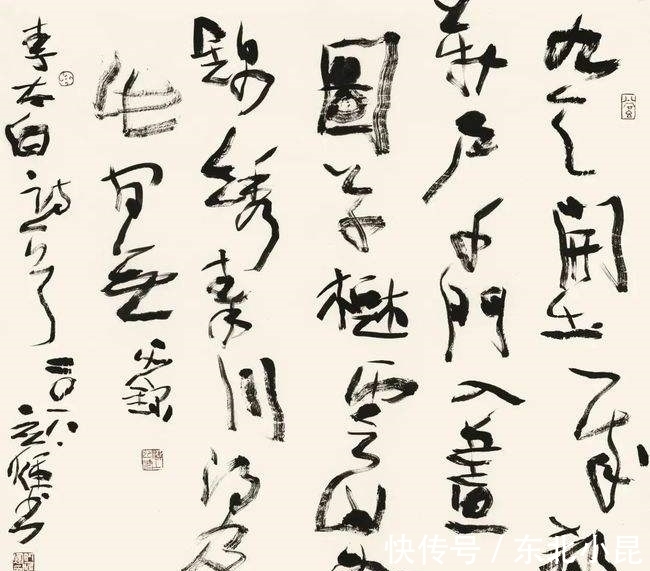 九天開出一成都
萬戶千門入畫
圖草樹雲山如
錦綉秦川得及
此間無
李太白詩
快传号 / 东北小昆